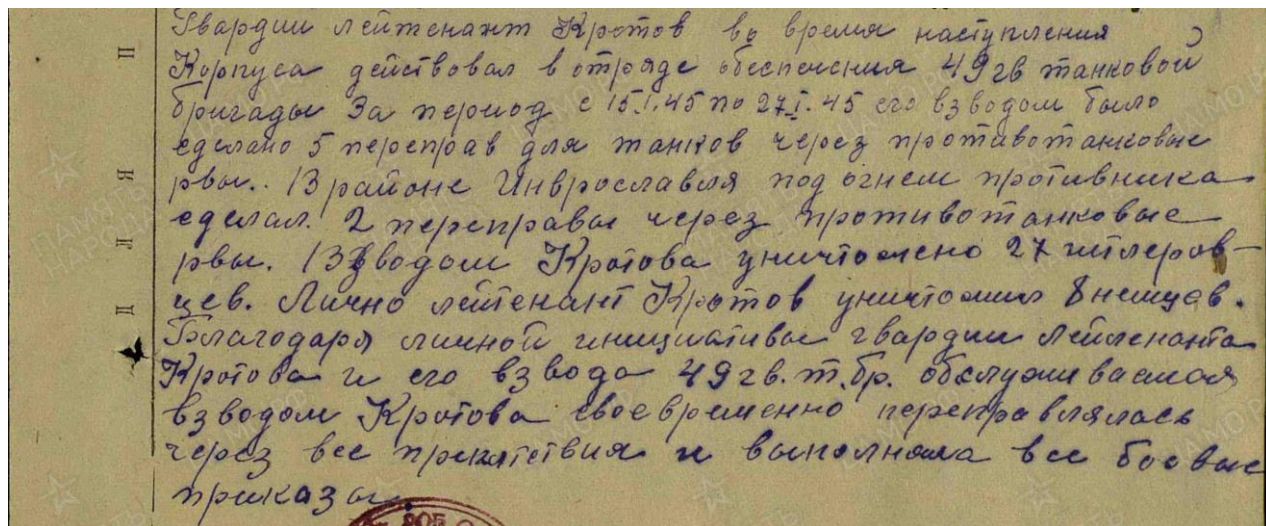 Гвардии лейтенант Кротов во время наступления
Корпуса действовал в отряде обеспечения 49 гв танковой
бригады За период с 15.I.45 по 27.I.45 его взводом было
сделано 5 переправ для танков через противотанковые
рвы.. В районе Инврославля под огнем противника
сделал. 2 переправы через противотанковые
рвы. Взводом Кротова уничтожено 27 гитлеров-
цев. Лично лейтенант Кротов уничтожил 8 немцев.
Благодаря личной инициативы гвардии лейтенанта
Кротова и его взвода 49 гв. т. бр. обслуживаемая
взводом Кротова своевременно переправлялась
через все препятствия и выполняла все боевые
приказы.